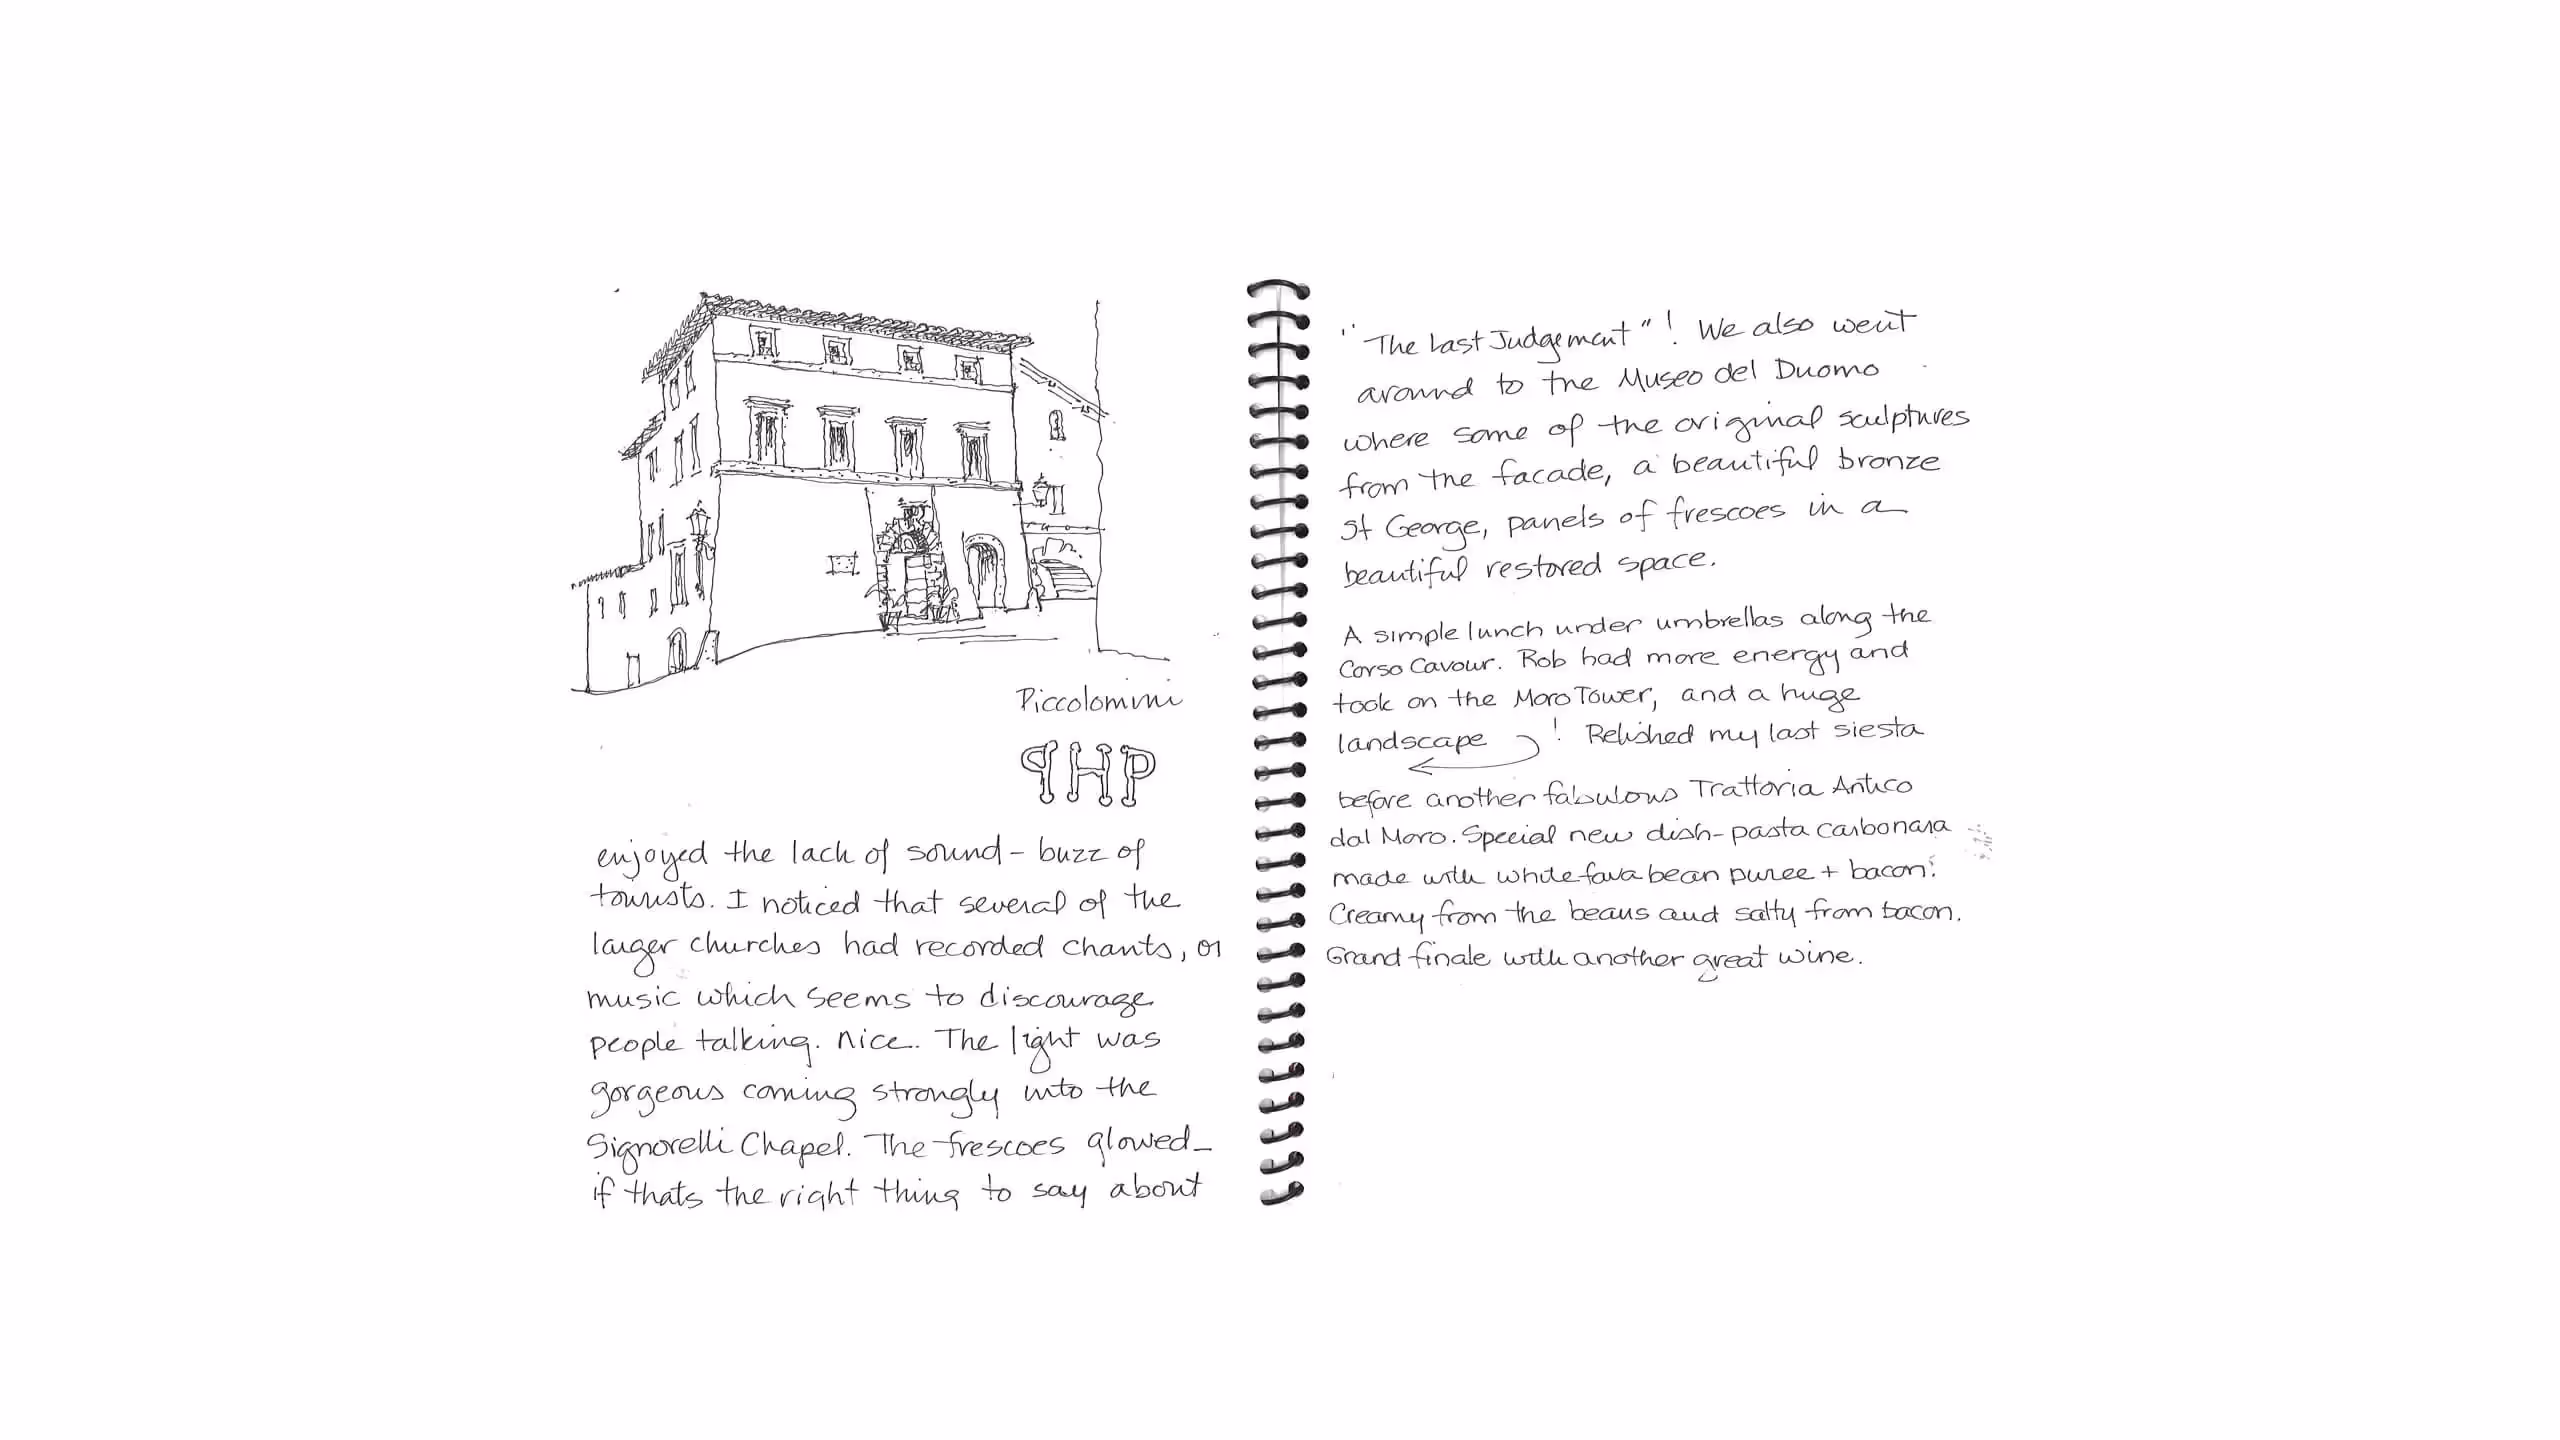 Piccolomini
PHP
enjoyed the lack of sound - buzz of
tourists. I noticed that several of the
larger churches had recorded chants, or
music which seems to discourage
people talking. nice. The light was
gorgeous coming strongly into the
Signorelli Chapel. The frescoes glowed -
if thats the right thing to say about
"The Last Judgement"! We also went
around to the Museo del Duomo
where some of the original sculptures
from the facade, a beautiful bronze
St George, panels of frescoes in a
beautiful restored space.
A simple lunch under umbrellas along the
Corso Cavour. Rob had more energy and
took on the Moro Tower, and a huge
landscape ! Relished my last siesta
before another fabulous Trattoria Antico
dal Moro. Special new dish - pasta carbonara
made with white fava bean puree + bacon!
Creamy from the beans and salty from bacon.
Grand finale with another great wine.